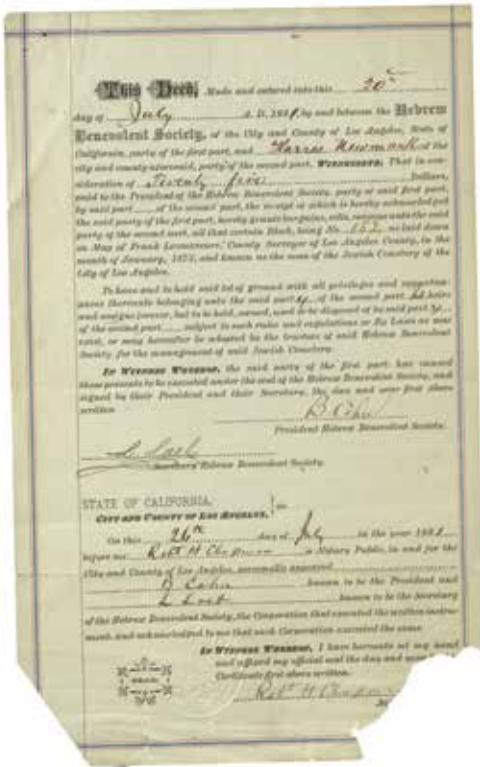 This Deed, Made and entered into this 20th
day of July A. D. 188 , by and between the Hebrew
Benevolent Society, of the City and County of Los Angeles, State of
California, party of the first part, and Harris Newmark of the
city and county aforesaid, party of the second part, WITNESSETH: That in con-
sideration of Twenty five Dollars,
paid to the President of the Hebrew Benevolent Society, party of said first part,
by said part of the second part, the receipt of which is hereby acknowledged
the said party of the first part, hereby grants bargains, sells, conveys unto the said
party of the second part, all that certain Block, being No. as laid down
on Map of Frank Lecouvreur, County Surveyor of Los Angeles County, in the
month of January, 1873, and known as the map of the Jewish Cemetery of the
City of Los Angeles.
To have and to hold said lot of ground with all privilege and appurten-
ances thereunto belonging unto the said party of the second part his heirs
and assigns forever, but to be held, owned, used or be disposed of by said party
of the second part subject to such rules and regulations or By Laws as now
exist, or may hereafter be adopted by the trustees of said Hebrew Benevolent
Society for the management of said Jewish Cemetery.
IN WITNESS WHEREOF, the said party of the first part has caused
these presents to be executed under the seal of the Hebrew Benevolent Society, and
signed by their President and their Secretary, the day and year first above
written
B Cohn
President Hebrew Benevolent Society.
L Loeb
Secretary Hebrew Benevolent Society.
STATE OF CALIFORNIA,
CITY AND COUNTY OF LOS ANGELES, } ss.
On this 26th day of July in the year 188
before me Robt H Chapman a Notary Public, in and for the
City and County of Los Angeles, personally appeared
B Cohn known to be the President and
L Loeb known to be the Secretary
of the Hebrew Benevolent Society, the Corporation that executed the written instru-
ment, and acknowledged to me that such Corporation executed the same
IN WITNESS WHEREOF, I have hereunto set my hand
and affixed my official seal the day and year
Certificate first above written.
SEAL
Robt H Chapman